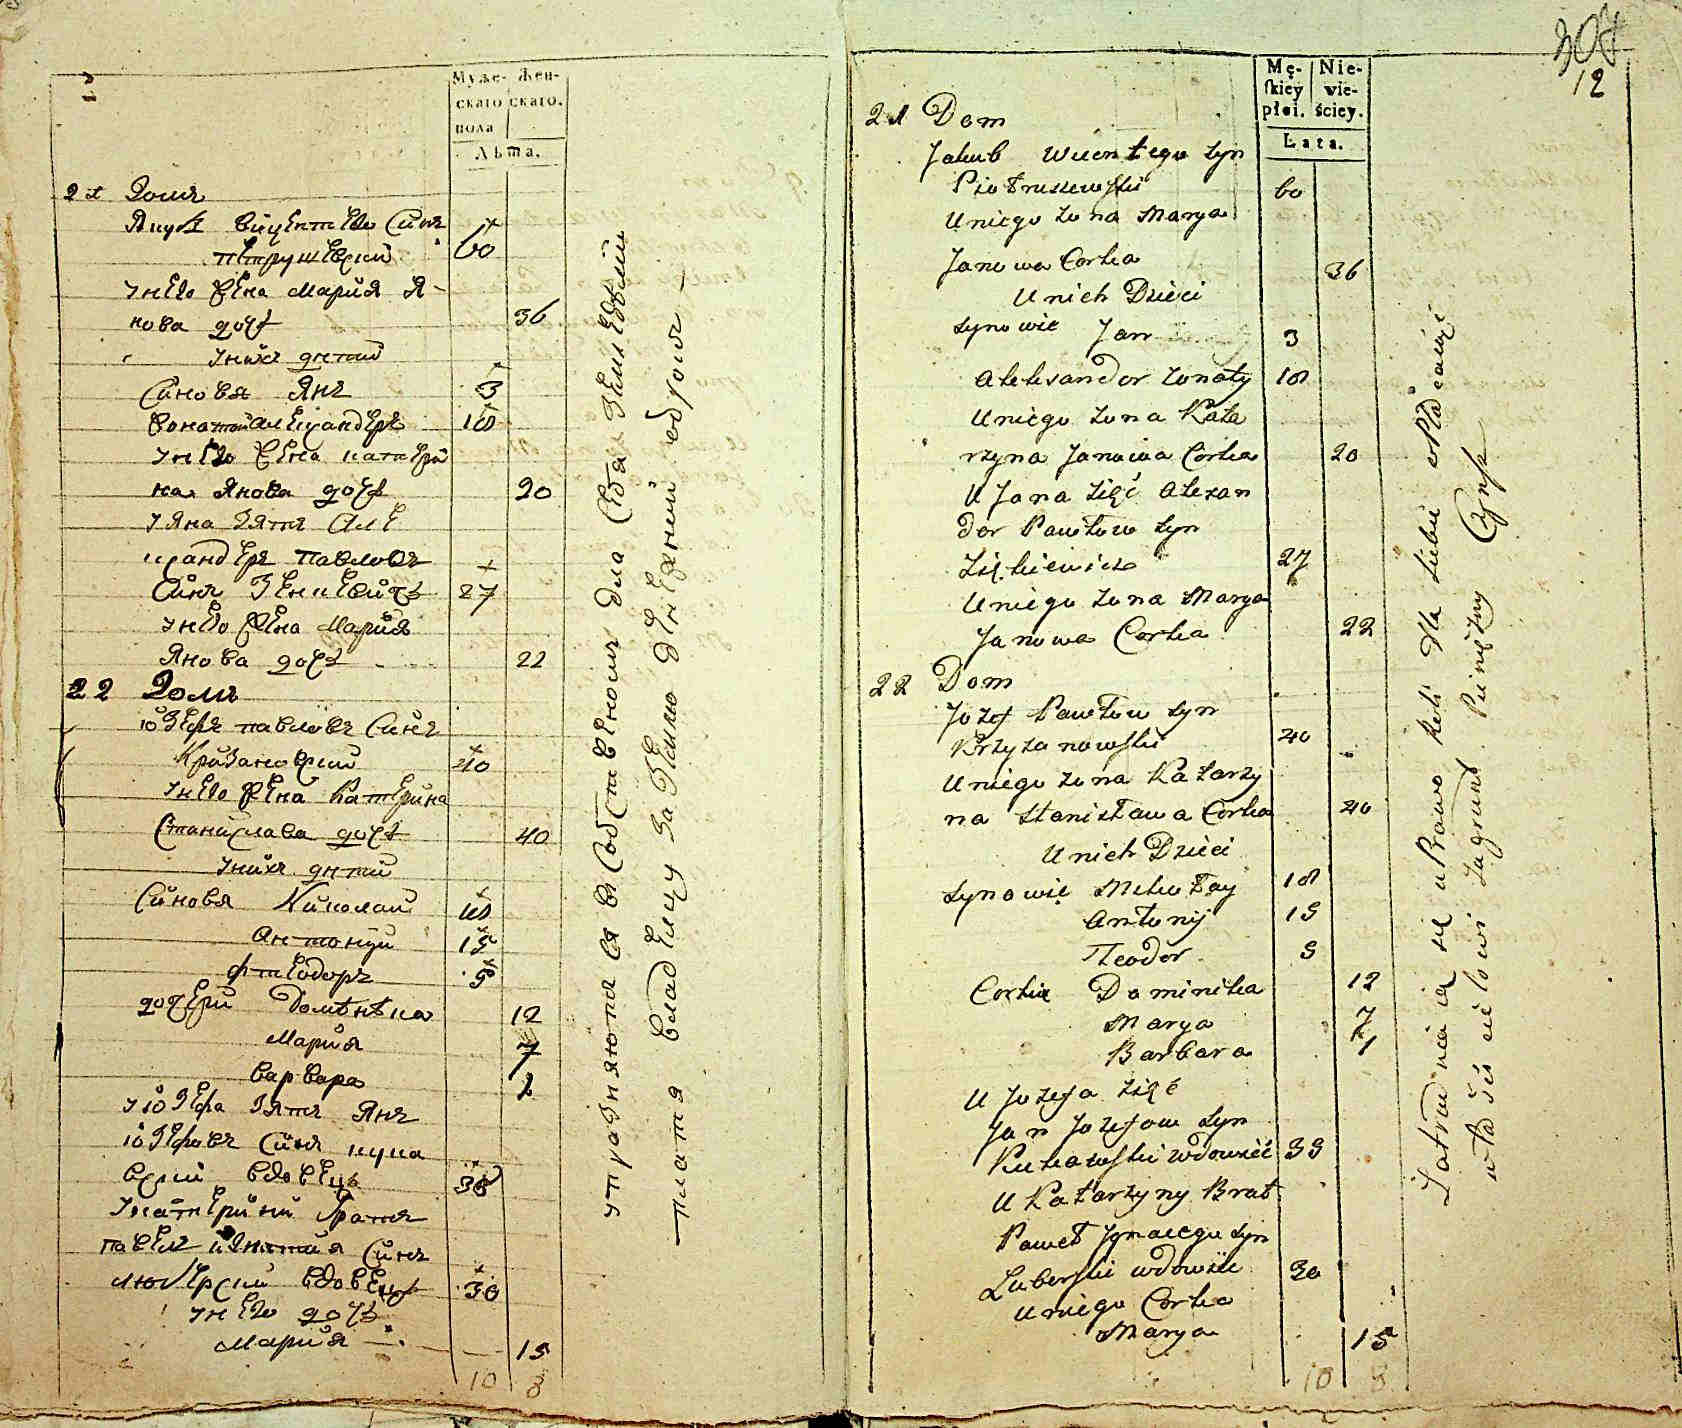 Муже- Жен-
скаго скаго.
пола
Лѣта.
21 Домъ
Якубъ Винцентего Синъ
Петрушевский 60
У него жена Мария Я-
нова дочь 36
У нихъ дѣти
Синовя Янъ 3
Женатый Александеръ 18
У него жена Катери
на Янова дочь 20
У Яна зять Але
ксандеръ Павловъ
Синъ Зенкевичъ 27
У него жена Мария
Янова дочь 22
22 Домъ
Іозефъ Павловъ Синъ
Кризановский 40
У него жена Катерина
Станислава дочь 40
У нихъ дѣти
Синовя Николай 18
Антоний 15
Фтеодоръ 9
дочери Доминика 12
Мария 7
Варвара 1
У Іозефа зять Янъ
Іозефовъ Синъ Кука
вский вдовецъ 39
У Катерини братъ
Павелъ Игнатия Синъ
Люберский вдовецъ 30
У него дочь
Мария 15
10 8
упражняются въ собственномъ для себя земледѣлии
платя владельцу за землю денежний оброкъ
307
12
Mę- Nie-
skiey wie-
płci. ściey.
Lata.
21 Dom
Jakub Wicentego Syn
Piotruszewski 60
U niego żona Marya
Janowa Corka 36
U nich Dzieci
Synowie Jan 3
Aleksander żonaty 18
U niego żona Kata
rzyna Janowa Corka 20
U Jana zięć Alexan
der Pawłow Syn
Ziękiewicz 27
U niego żona Marya
Janowa Corka 22
22 Dom
Jozef Pawłow Syn
Krzyżanowski 40
U niego żona Katarzy
na Stanisława Corka 40
U nich Dzieci
Synowie Mikołay 18
Antonij 15
Teodor 9
Corki Dominika 12
Marya 7
Barbara 1
U Jozefa zięć
Jan Jozefow Syn
Kukawski wdowiec 39
U Katarzyny Brat
Paweł Jgnacego Syn
Luberski wdowiec 30
U niego Corka
Marya 15
10 8
Zatrudniaia się uprawo Roli dla siebie Płacąc
właścicielowi za grunt Pieniężny Czynsz